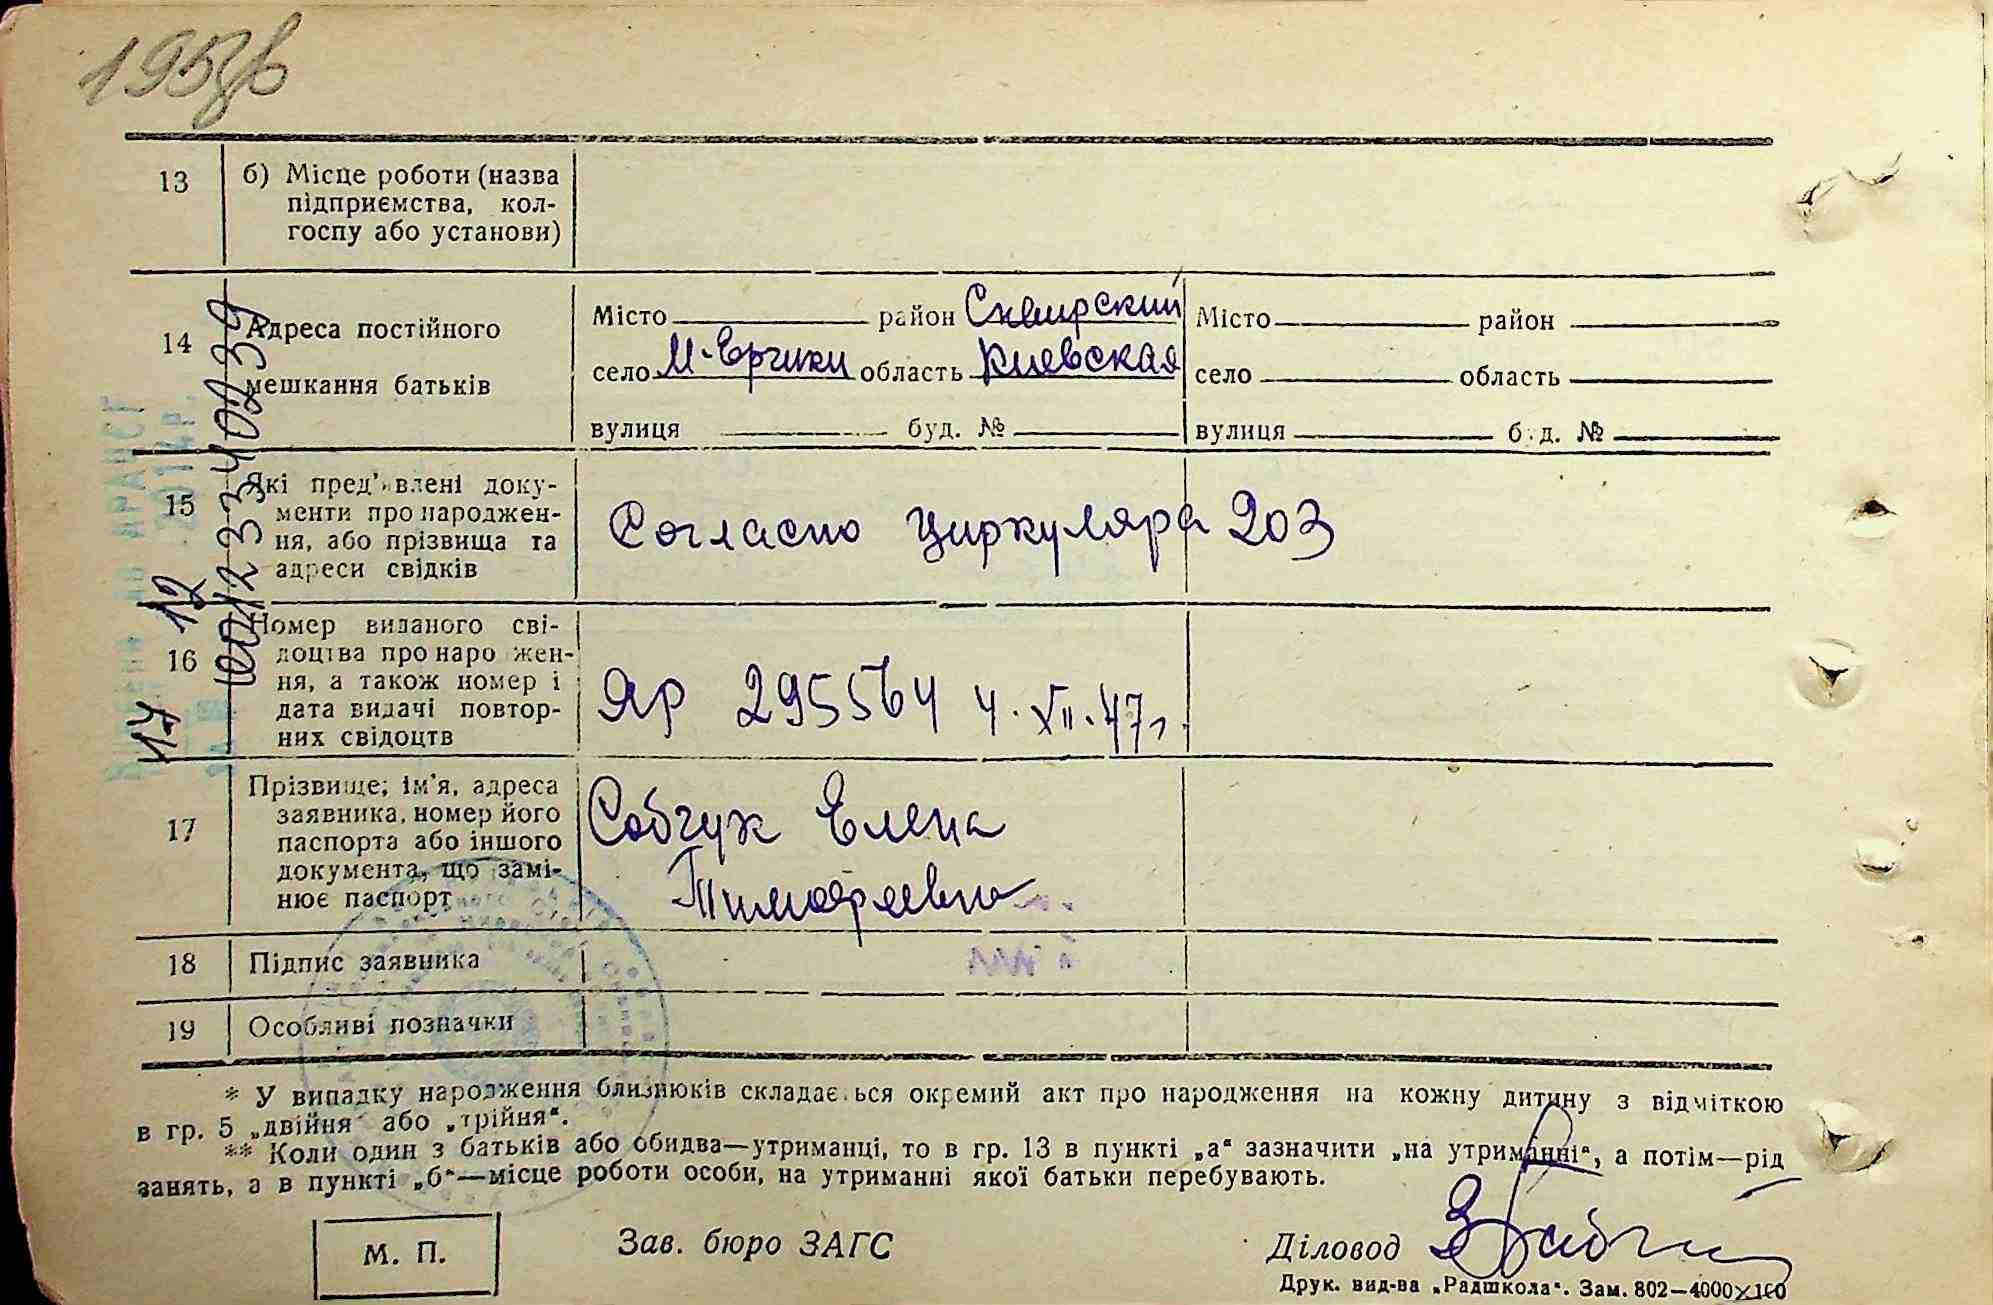 195
13 б) Місце роботи (назва
підприємства, кол-
госпу або установи)
14 Адреса постійного
мешкання батьків
Місто район Сквирский
село М-Ерчики область Киевская
вулиця буд. №
Місто район
село область
вулиця б д. №
15 Які пред'явлені доку-
менти про народжен-
ня, або прізвища та
адреси свідків
Согласно циркуляра 203
16 Номер виданого сві-
доцтва про народжен-
ня, а також номер і
дата видачі повтор-
них свідоцтв
ЯР 295564 4.XII.47г.
17 Прізвище, ім'я, адреса
заявника, номер його
паспорта або іншого
документа, що замі-
нює паспорт
Собчук Елена
Тимофеевна
18 Підпис заявника
19 Особливі позначки
* У випадку народження близнюків складається окремий акт про народження на кожну дитину з відміткою
в гр. 5 „двійня“ або „трійня“.
** Коли один з батьків або обидва—утриманці, то в гр. 13 в пункті „а“ зазначити „на утриманні“, а потім—рід
занять, а в пункті „б“—місце роботи особи, на утриманні якої батьки перебувають.
М. П.
Зав. бюро ЗАГС
Діловод
Друк. вид-ва „Радшкола“. Зам. 802—4000×100